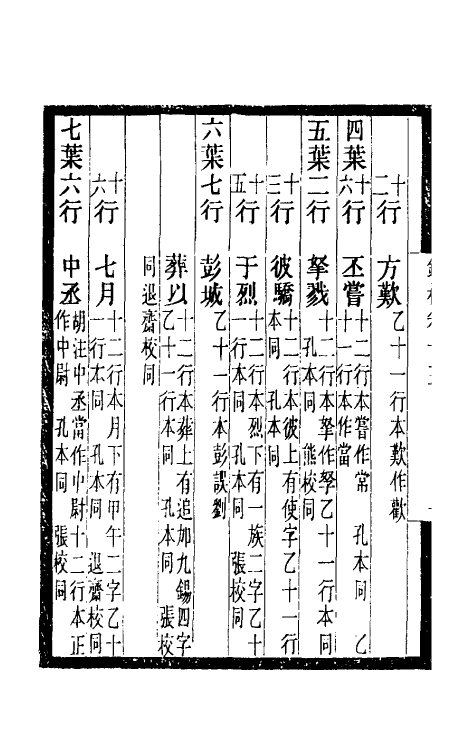 十二行　方歎　乙十一行本歎作歡
四葉十六行　丕嘗　十二行本嘗作常　孔本同　乙
十一行本作當
五葉二行　拏戮　十二行本拏作孥乙十一行本同
孔本同　熊校同
十三行　彼驕　十二行本彼上有使字乙十一行
本同　孔本同
十五行　于烈　十二行本烈下有一族二字乙十
一行本同　孔本同　張校同
六葉七行　彭城　乙十一行本彭誤劉
葬以　十二行本葬上有追加九錫四字
乙十一行本同　孔本同　張校
同退齋校同
十六行　七月　十二行本月下有甲午二字乙十
一行本同　孔本同　退齋校同
七葉六行　中丞　胡注中丞當作中尉十二行本正
作中尉　孔本同　張校同